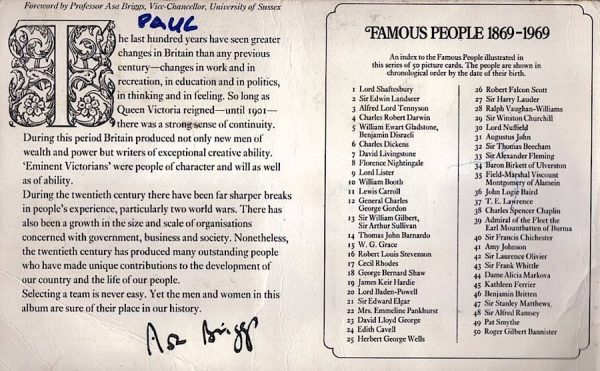 Foreword by Professor Asa Briggs, Vice-Chancellor, University of Sussex
PAUL
The last hundred years have seen greater
changes in Britain than any previous
century—changes in work and in
recreation, in education and in politics,
in thinking and in feeling. So long as
Queen Victoria reigned—until 1901—
there was a strong sense of continuity.
During this period Britain produced not only new men of
wealth and power but writers of exceptional creative ability.
'Eminent Victorians' were people of character and will as well
as of ability.
During the twentieth century there have been far sharper breaks
in people's experience, particularly two world wars. There has
also been a growth in the size and scale of organisations
concerned with government, business and society. Nonetheless,
the twentieth century has produced many outstanding people
who have made unique contributions to the development of
our country and the life of our people.
Selecting a team is never easy. Yet the men and women in this
album are sure of their place in our history.
Asa Briggs
FAMOUS PEOPLE 1869-1969
An index to the Famous People illustrated in
this series of 50 picture cards. The people are shown in
chronological order by the date of their birth.
1 Lord Shaftesbury
2 Sir Edwin Landseer
3 Alfred Lord Tennyson
4 Charles Robert Darwin
5 William Ewart Gladstone,
Benjamin Disraeli
6 Charles Dickens
7 David Livingstone
8 Florence Nightingale
9 Lord Lister
10 William Booth
11 Lewis Carroll
12 General Charles
George Gordon
13 Sir William Gilbert,
Sir Arthur Sullivan
14 Thomas John Barnardo
15 W. G. Grace
16 Robert Louis Stevenson
17 Cecil Rhodes
18 George Bernard Shaw
19 James Keir Hardie
20 Lord Baden-Powell
21 Sir Edward Elgar
22 Mrs. Emmeline Pankhurst
23 David Lloyd George
24 Edith Cavell
25 Herbert George Wells
26 Robert Falcon Scott
27 Sir Harry Lauder
28 Ralph Vaughan-Williams
29 Sir Winston Churchill
30 Lord Nuffield
31 Augustus John
32 Sir Thomas Beecham
33 Sir Alexander Fleming
34 Baron Birkett of Ulverston
35 Field-Marshal Viscount
Montgomery of Alamein
36 John Logie Baird
37 T. E. Lawrence
38 Charles Spencer Chaplin
39 Admiral of the Fleet the
Earl Mountbatten of Burma
40 Sir Francis Chichester
41 Amy Johnson
42 Sir Laurence Olivier
43 Sir Frank Whittle
44 Dame Alicia Markova
45 Kathleen Ferrier
46 Benjamin Britten
47 Sir Stanley Matthews,
48 Sir Alfred Ramsey
49 Pat Smythe
50 Roger Gilbert Bannister